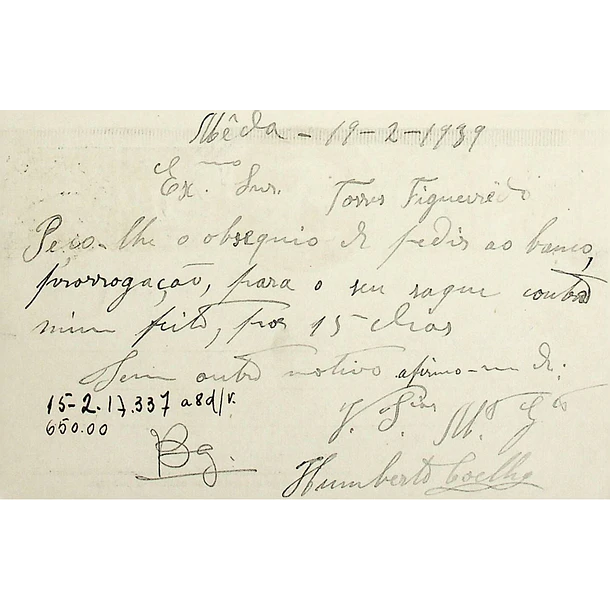 Mêda - 19-2-1939
Ex.mo Snr. Torres Figueirêdo
Peço-lhe o obsequio de pedir ao banco,
prorrogação, para o seu saque contra
mim feito, por 15 dias
Sem outro motivo afirmo-me de:
V. Sia M.to
15-2.17.337 a 8 d/v.
650.00
Bg.
Humberto Coelho